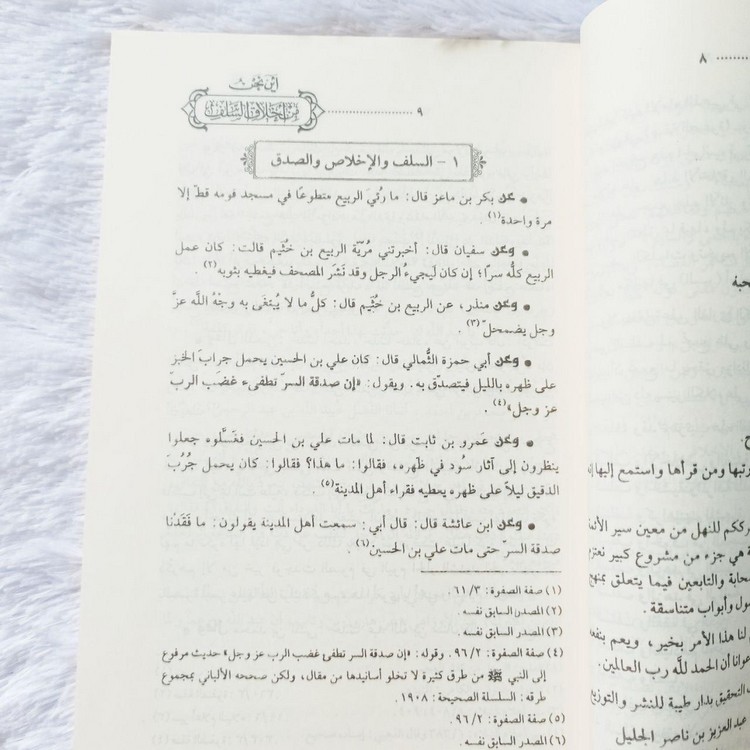 أين نحن
من أخلاق السلف
٩
١ - السلف والإخلاص والصدق
• عن بكر بن ماعز قال: ما رُئيَ الربيع متطوعًا في مسجد قومه قطّ إلا
مرة واحدة(١) .
• وعن سفيان قال: أخبرتني مُرِّيَّة الربيع بن خثَيم قالت: كان عمل
الربيع كلُّه سرًّا؛ إن كان لَيجيءُ الرجل وقد نَشَر المصحف فيغطيه بثوبه(٢) .
• وعن منذر، عن الربيع بن خثَيم قال: كلُّ ما لا يُبتغَى به وجْهُ اللَّه عزَّ
وجل يضمحلّ(٣) .
• وعن أبي حمزة الثُّمالي قال: كان علي بن الحسين يحمل جرابَ الخبز
على ظهره بالليل فيتصدّق به. ويقول: «إن صدقة السرّ تطفىء غضَب الربّ
عز وجل»(٤) .
• وعن عَمرو بن ثابت قال: لما مات علي بن الحسين فغَسَّلوه جعلوا
ينظرون إلى آثار سُود في ظهره، فقالوا: ما هذا؟ فقالوا: كان يحمل جُرُبَ
الدقيق ليلاً على ظهره يعطيه فقراء أهل المدينة(٥) .
• وعن ابن عائشة قال: قال أبي: سمعت أهل المدينة يقولون: ما فَقَدْنا
صدقة السرّ حتى مات علي بن الحسين(٦) .
(١) صفة الصفوة: ٣/ ٦١.
(٢) المصدر السابق نفسه .
(٣) المصدر السابق نفسه .
(٤) صفة الصفوة: ٢/ ٩٦. وقوله: «إن صدقة السر تطفئ غضب الرب عز وجل» حديث مرفوع
إلى النبي ﷺ من طرق كثيرة لا تخلو أسانيدها من مقال، ولكن صححه الألباني بمجموع
طرقه: السلسلة الصحيحة: ١٩٠٨.
(٥) صفة الصفوة: ٢/ ٩٦.
(٦) المصدر السابق نفسه .
٨
رتبها ومن قرأها واستمع إليها
للنهل من معين سير
هي جزء من مشروع كبير
والتابعين فيما يتعلق
وأبواب متناسقة .
لنا هذا الأمر بخير، ويعم
أن الحمد للَّه رب العالمين.
التحقيق بدار طيبة للنشر والتوزيع
عبد العزيز بن ناصر الجليل